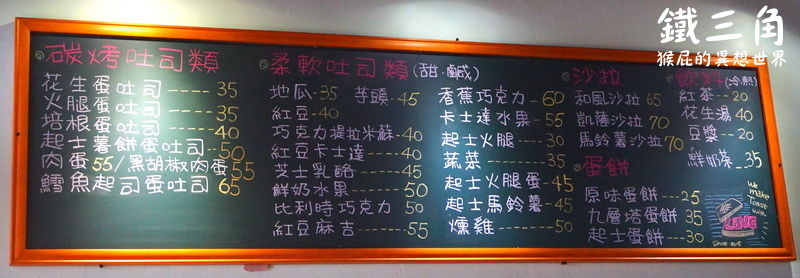 鐵三角
猴屁的異想世界
碳烤吐司類
花生蛋吐司-----35
火腿蛋吐司-----35
培根蛋吐司----40
起士薯餅蛋吐司--50
肉蛋55/黑胡椒肉蛋55
鱈魚起司蛋吐司--65
柔軟吐司類(甜.鹹)
地瓜-35 芋頭--45
紅豆--40
巧克力提拉米蘇--40
紅豆卡士達---40
芝士乳酪-----45
鮮奶水果-----50
比利時巧克力 50
紅豆麻吉----55
香蕉巧克力-60
卡士達水果--55
起士火腿---30
蔬菜----35
起士火腿蛋-45
起士馬鈴薯-45
燻雞---50
沙拉
和風沙拉65
凱薩沙拉70
馬鈴薯沙拉70
蛋餅
原味蛋餅---25
九層塔蛋餅35
起士蛋餅---30
飲料(冷.熱)
紅茶--20
花生湯40
豆漿--20
鮮奶茶_35
we
make
Toast
with
LOVE
since 2015